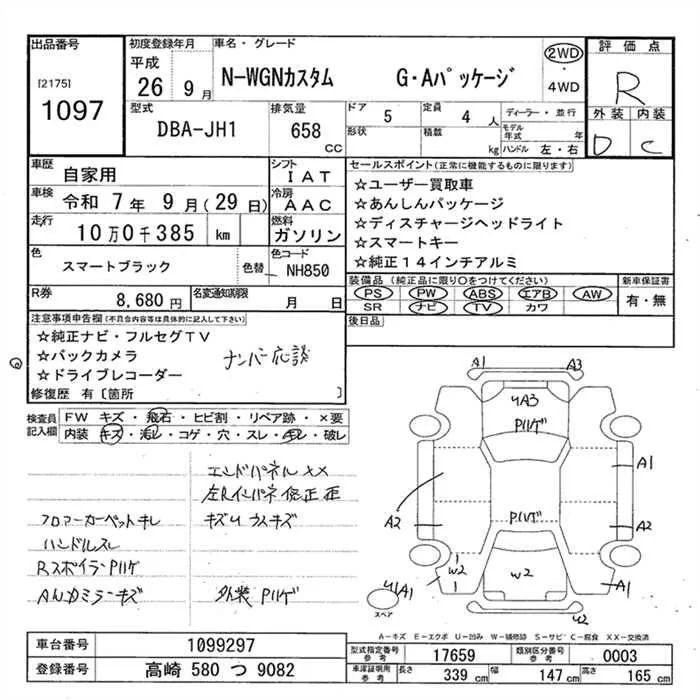 出品番号
[2175]
1097
初度登録年月
平成
26 9月
車名・グレード
N-WGNカスタム G・Aパッケージ
2WD
・
4WD
評価点
R
外装 内装
D C
型式
DBA-JH1
排気量
658
CC
ドア 5
定員 4 人
形状
積載 kg
ディーラー・並行
モデル年式 年
ハンドル 左・右
車歴 自家用
シフト IAT
車検 令和 7年 9月(29日)
冷房 AAC
走行 10万0千385 km
燃料 ガソリン
色 スマートブラック
色替
カラーコード NH850
R券 8,680円
名変通知期限 月 日
セールスポイント(正常に機能するものに限ります)
☆ユーザー買取車
☆あんしんパッケージ
☆ディスチャージヘッドライト
☆スマートキー
☆純正14インチアルミ
装備品(純正品に限り〇をつけてください)
PS PW ABS エアB AW
SR ナビ TV カワ
新車保証書
有・無
後日品
注意事項申告欄(不具合内容等は具体的に記入して下さい)
☆純正ナビ・フルセグTV
☆バックカメラ
☆ドライブレコーダー
ナンバー応談
修復歴 有〔箇所 〕
検査員記入欄
FW キズ・飛石・ヒビ割・リペア跡・×要
内装 キズ・汚レ・コゲ・穴・スレ・キレ・破レ
エンドパネルXX
左Rインパネ修正歪
フロアーカーペットキレ
キズUウスキズ
ハンドルスレ
RスポイラーPハゲ
外装Pハゲ
A1
A3
UA3
Pハゲ
A1
Pハゲ
A2
A2
W2
1
W2
1
UA1
A1
U2
スペア
A-キズ E-エクボ U-凹み W-補修跡 S-サビ C-腐食 XX-交換済
車台番号 1099297
登録番号 高崎 580 つ 9082
型式指定番号
参考
17659
類別区分番号
参考
0003
車庫証明用
参考
長さ 339cm
幅 147cm
高さ 165cm